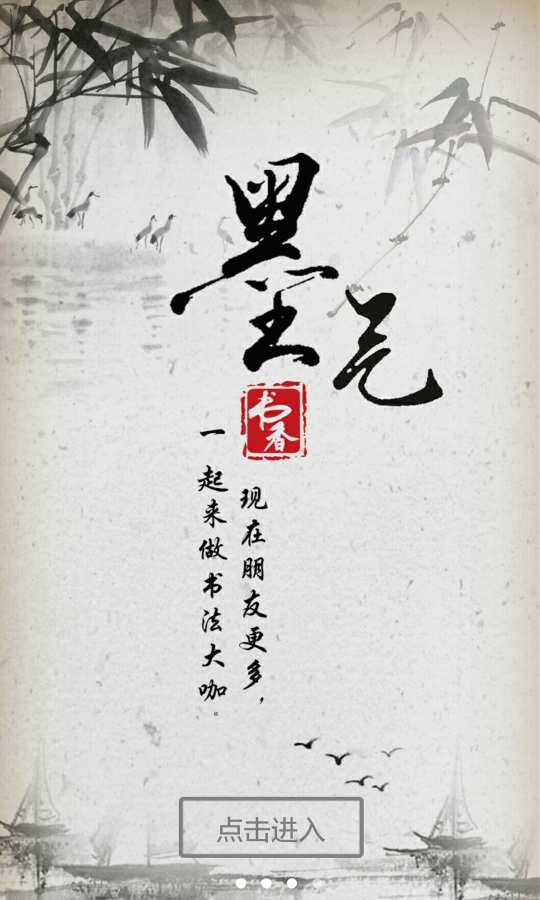 墨气
书香
现在朋友更多，
一起来做书法大咖。
点击进入